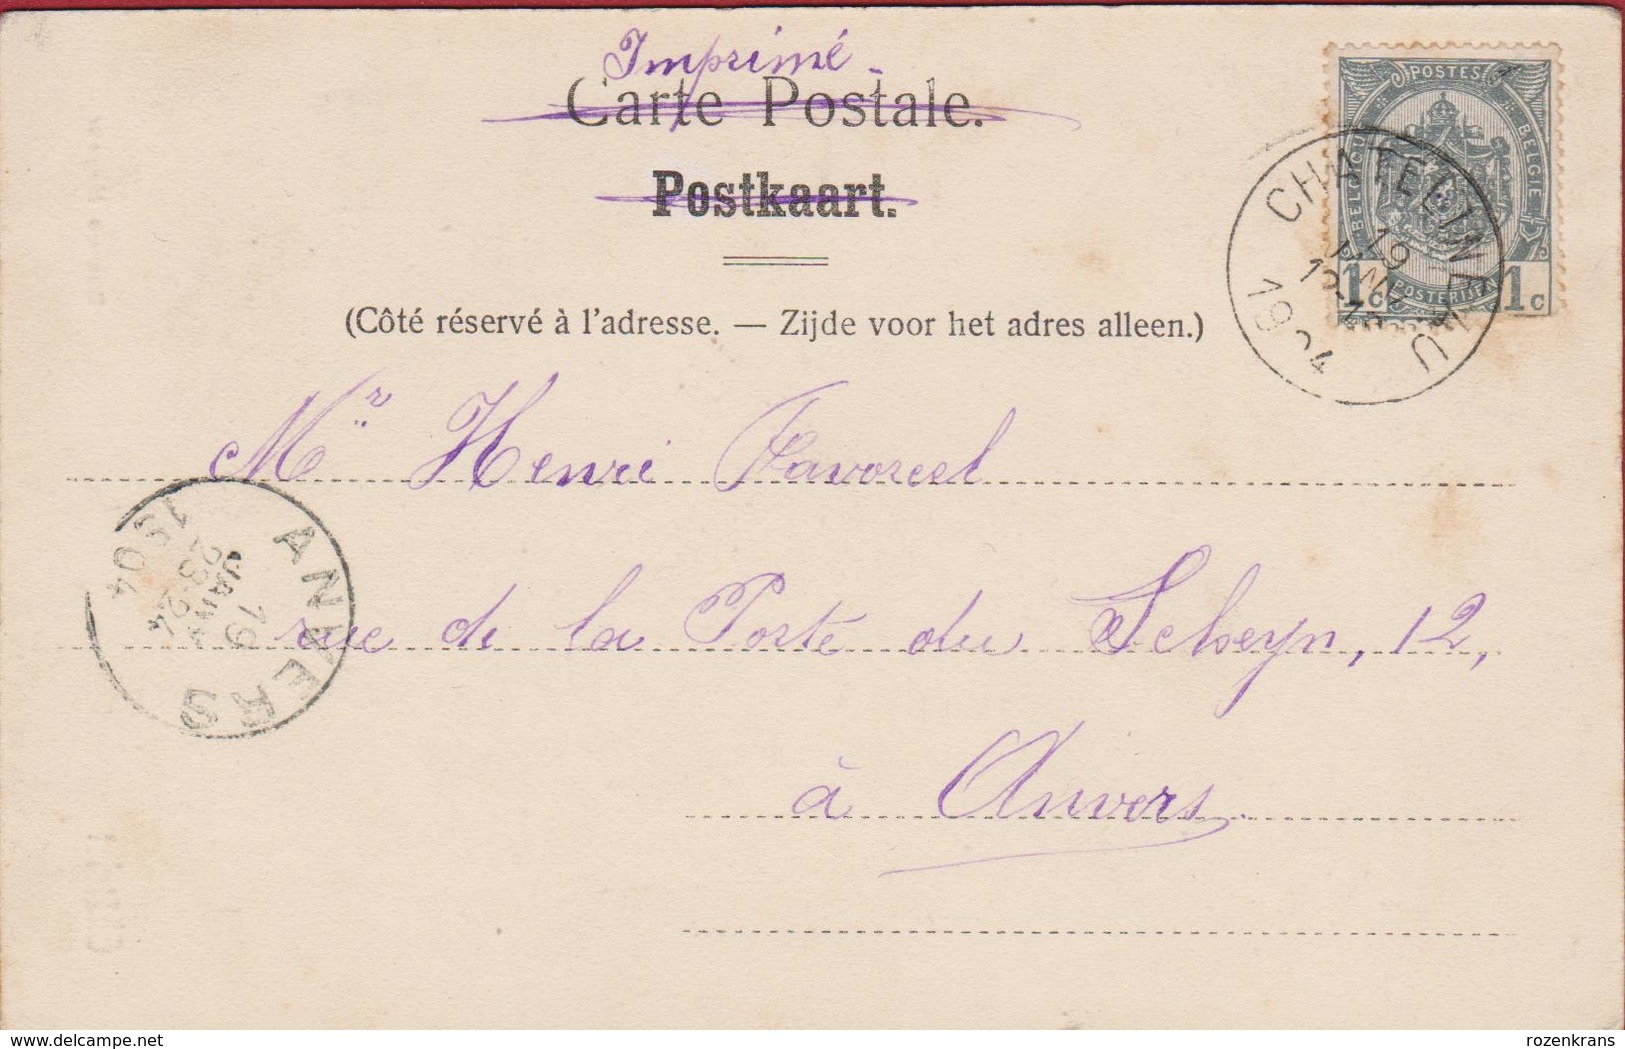 Imprimé
Carte Postale.
Postkaart.
(Côté réservé à l'adresse. — Zijde voor het adres alleen.)
POSTES
BELGIQUE BELGIE
POSTERIJEN
1c 1c
CHATELINEAU
19
JANV
1904
Mr Henri Favoreel
rue de la Poste du Scheyn, 12,
à Anvers.
ANVERS
19
JANV
23-24
1904
delcampe.net
rozenkrans